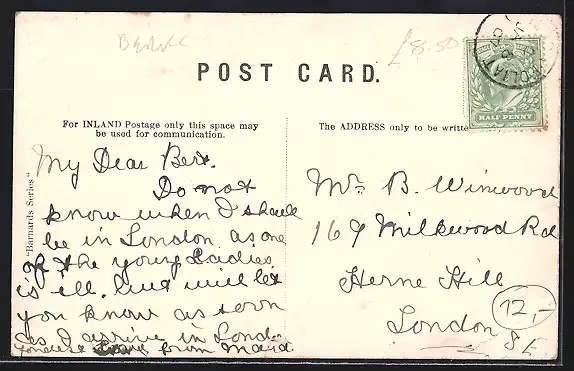 £8.50
POST CARD.
HALF PENNY
For INLAND Postage only this space may
be used for communication.
The ADDRESS only to be writte
"Barnards Series."
My Dear Bert.
Do not
know when I shall
be in London as one
of the young Ladies
is ill. but will let
you know as soon
as I arrive in London
from Maud
Mr B. Winwood
169 Milkwood Rd
Herne Hill
London
12,-